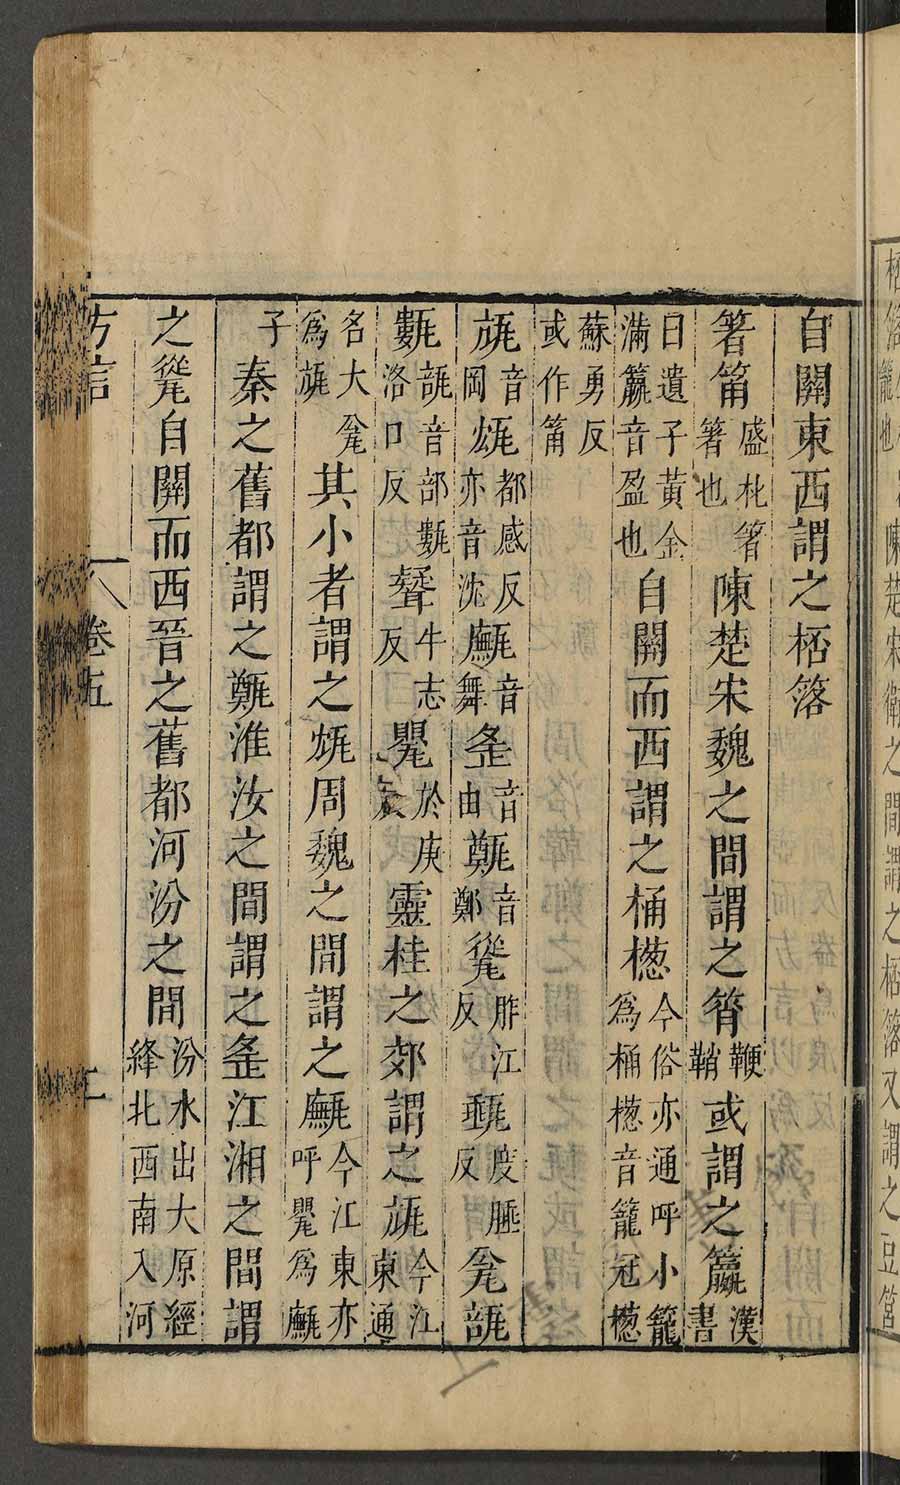 自關東西謂之桮落
箸筩盛朼箸箸也陳楚宋魏之間謂之筲鞭鞘或謂之籯漢書
曰遺子黃金滿籯音盈也自關而西謂之桶檧今俗亦通呼小籠為桶檧音籠冠檧
蘇勇反或作筩
㼚音岡瓭都感反亦音沈甒音舞䍃音由㽀音鄭㽍胙江反甀度睡反瓮瓿
甊瓿音部甊洛口反㽄牛志反甖於庚反靈桂之郊謂之㼚今江東通
名大瓮為㼚其小者謂之瓭周魏之間謂之甒今江東亦呼甖為甒
子秦之舊都謂之㽀淮汝之間謂之䍃江湘之間謂
之㽍自關而西晉之舊都河汾之間汾水出大原經絳北西南入河
方言 卷五